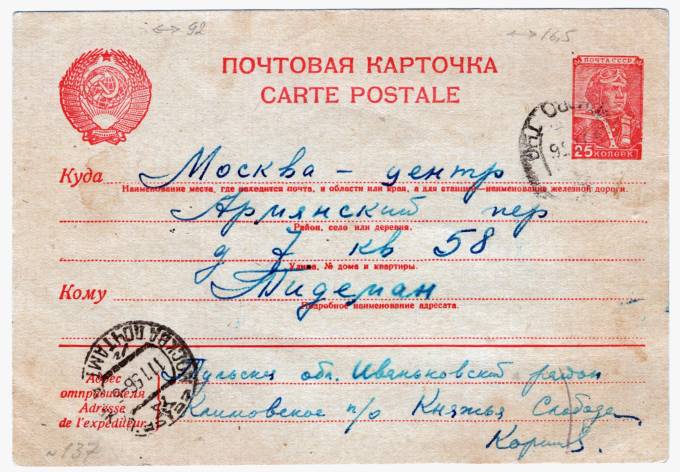 92
16,5
ПОЧТОВАЯ КАРТОЧКА
CARTE POSTALE
ПОЧТА СССР
25 КОПЕЕК
Куда Москва - центр
Наименование места, где находится почта, и области или края, а для станции—наименование железной дороги.
Армянский пер
Район, село или деревня.
д 7 кв 58
Улица, № дома и квартиры.
Кому Тидеман
Подробное наименование адресата.
МОСКВА ПОЧТАМТ
Адрес отправителя
Adresse de l'expéditeur
Тульская обл. Иваньковский район
Климовское п/о Княжья Слобода
N 137